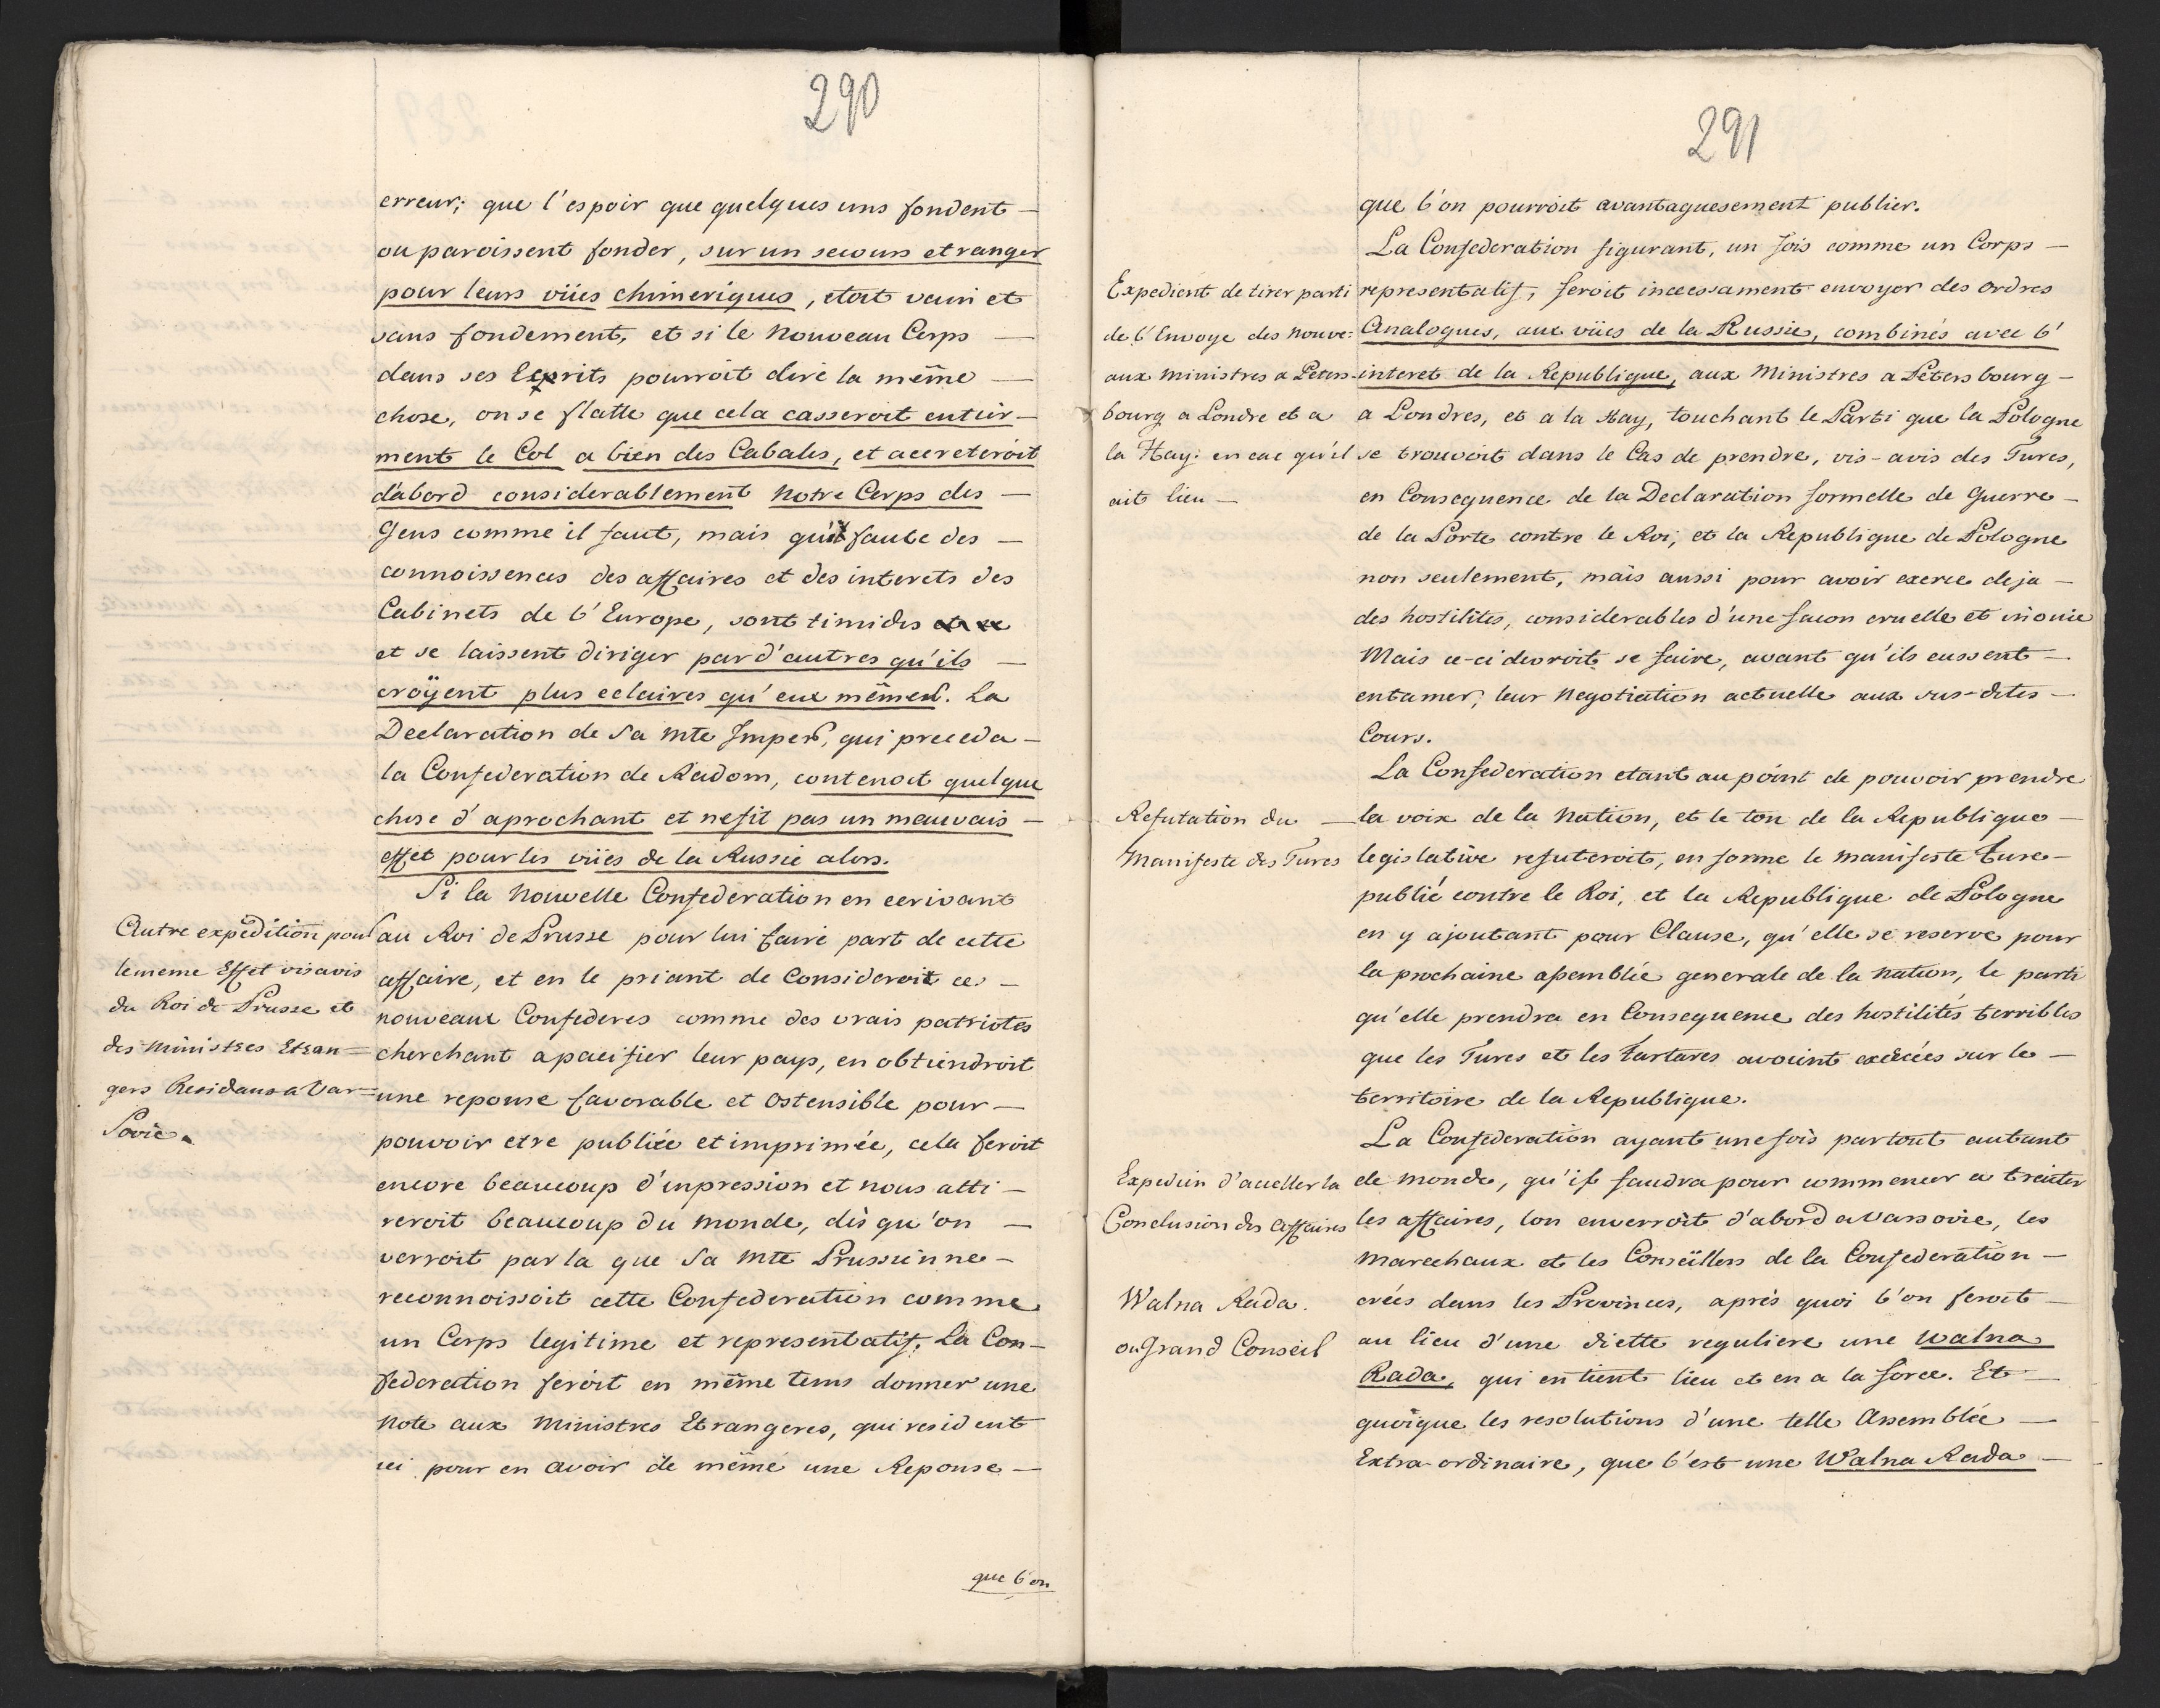 290
erreur; que l'espoir que quelques uns fondent –
ou paroissent fonder, sur un secours etranger
pour leurs vües chimeriques, etoit vain et
sans fondement, et si le Nouveau Corps —
dans ses Esprits pourroit dire la même —
chose, on se flatte que cela casseroit entier –
ment le Col a bien des Cabales, et accreteroit
d'abord considerablement Notre Corps des –
Gens comme il faut, mais qui faute des –
connoissences des affaires et des interets des
Cabinets de l'Europe, sont timides
et se laissent diriger par d'autres qu'ils –
croÿent plus eclaires qu'eux mêmes. La
Declaration de Sa Mte Imper, qui preceda –
la Confederation de Radom, contenoit quelque
chose d'aprochant et ne fit pas un mauvais –
effet pour les vües de la Russie alors.
Si la Nouvelle Confederation en ecrivant
Autre expedition pour
le meme Effet vis avis
du Roi de Prusse et
des Ministres Etran=
gers Residans a Var=
sovie.
au Roi de Prusse pour lui faire part de cette
affaire, et en le priant de Consideroit ces –
nouveaux Confederes comme des vrais patriotes
cherchant a pacifier leur pays, en obtiendroit
une reponse favorable et Ostensible pour –
pouvoir etre publiée et imprimée, cela feroit
encore beaucoup d'inpression et nous atti –
reroit beaucoup du Monde, dès qu'on –
verroit par la que Sa Mte Prussienne –
reconnoissoit cette Confederation comme
un Corps legitime et representatif. La Con –
federation feroit en même tems donner une
Note aux Ministres Etrangeres, qui resident
ici pour en avoir de même une Reponse –
que l'on
291
que l'on pourroit avantaguesement publier.
La Confederation figurant, un fois comme un Corps –
Expedient de tirer parti
de l'Envoye des Nouve:
aux Ministres a Peters-
bourg a Londre et a
la Hay: en cas qu'il
ait lieu –
representatif, feroit incessament envoyer des Ordres
Analogues, aux vües de la Russie, combinés avec l'
interet de la Republique, aux Ministres a Petersbourg –
a Londres, et a la Hay, touchant le Parti que la Pologne
se trouvoit dans le Cas de prendre, vis-avis des Turcs,
en Consequence de la Declaration formelle de Guerre –
de la Porte contre le Roi, et la Republique de Pologne
non seulement, mais aussi pour avoir exerce deja –
des hostilites, considerables d'une facon cruelle et inouie
Mais ce-ci devroit se faire, avant qu'ils eussent –
entamer, leur Negotiation actuelle aux sus-dites –
Cours.
La Confederation etant au point de pouvoir prendre
Refutation du –
Manifeste des Turcs
la voix de la Nation, et le ton de la Republique –
legislative refuteroit, en forme le Manifeste Turc –
publié contre le Roi, et la Republique de Pologne
en y ajoutant pour Clause, qu'elle se reserve pour
la prochaine assemblée generale de la Nation, le parti
qu'elle prendra en Consequence des hostilités terribles
que les Turcs et les Tartares avoient exercées sur le –
territoire de la Republique.
La Confederation ayant une fois partout autant
Conclusion des Affaires
Walna Rada.
ou Grand Conseil
de Monde, qu'il faudra pour commencer a treiter
les affaires, l'on enverroit d'abord a Varsovie, les
Marechaux et les Conseillers de la Confederation –
créés dans les Provinces, après quoi l'on feroit –
au lieu d'une diette reguliere une Walna
Rada, qui en tient lieu et en a la force. Et –
quoique les resolutions d'une telle Assemblée –
Extra-ordinaire, que l'est une Walna Rada –